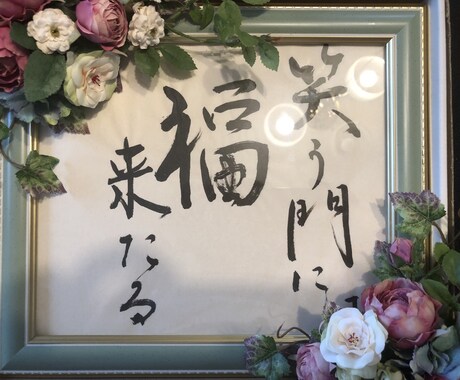 笑う門に
福
来たる